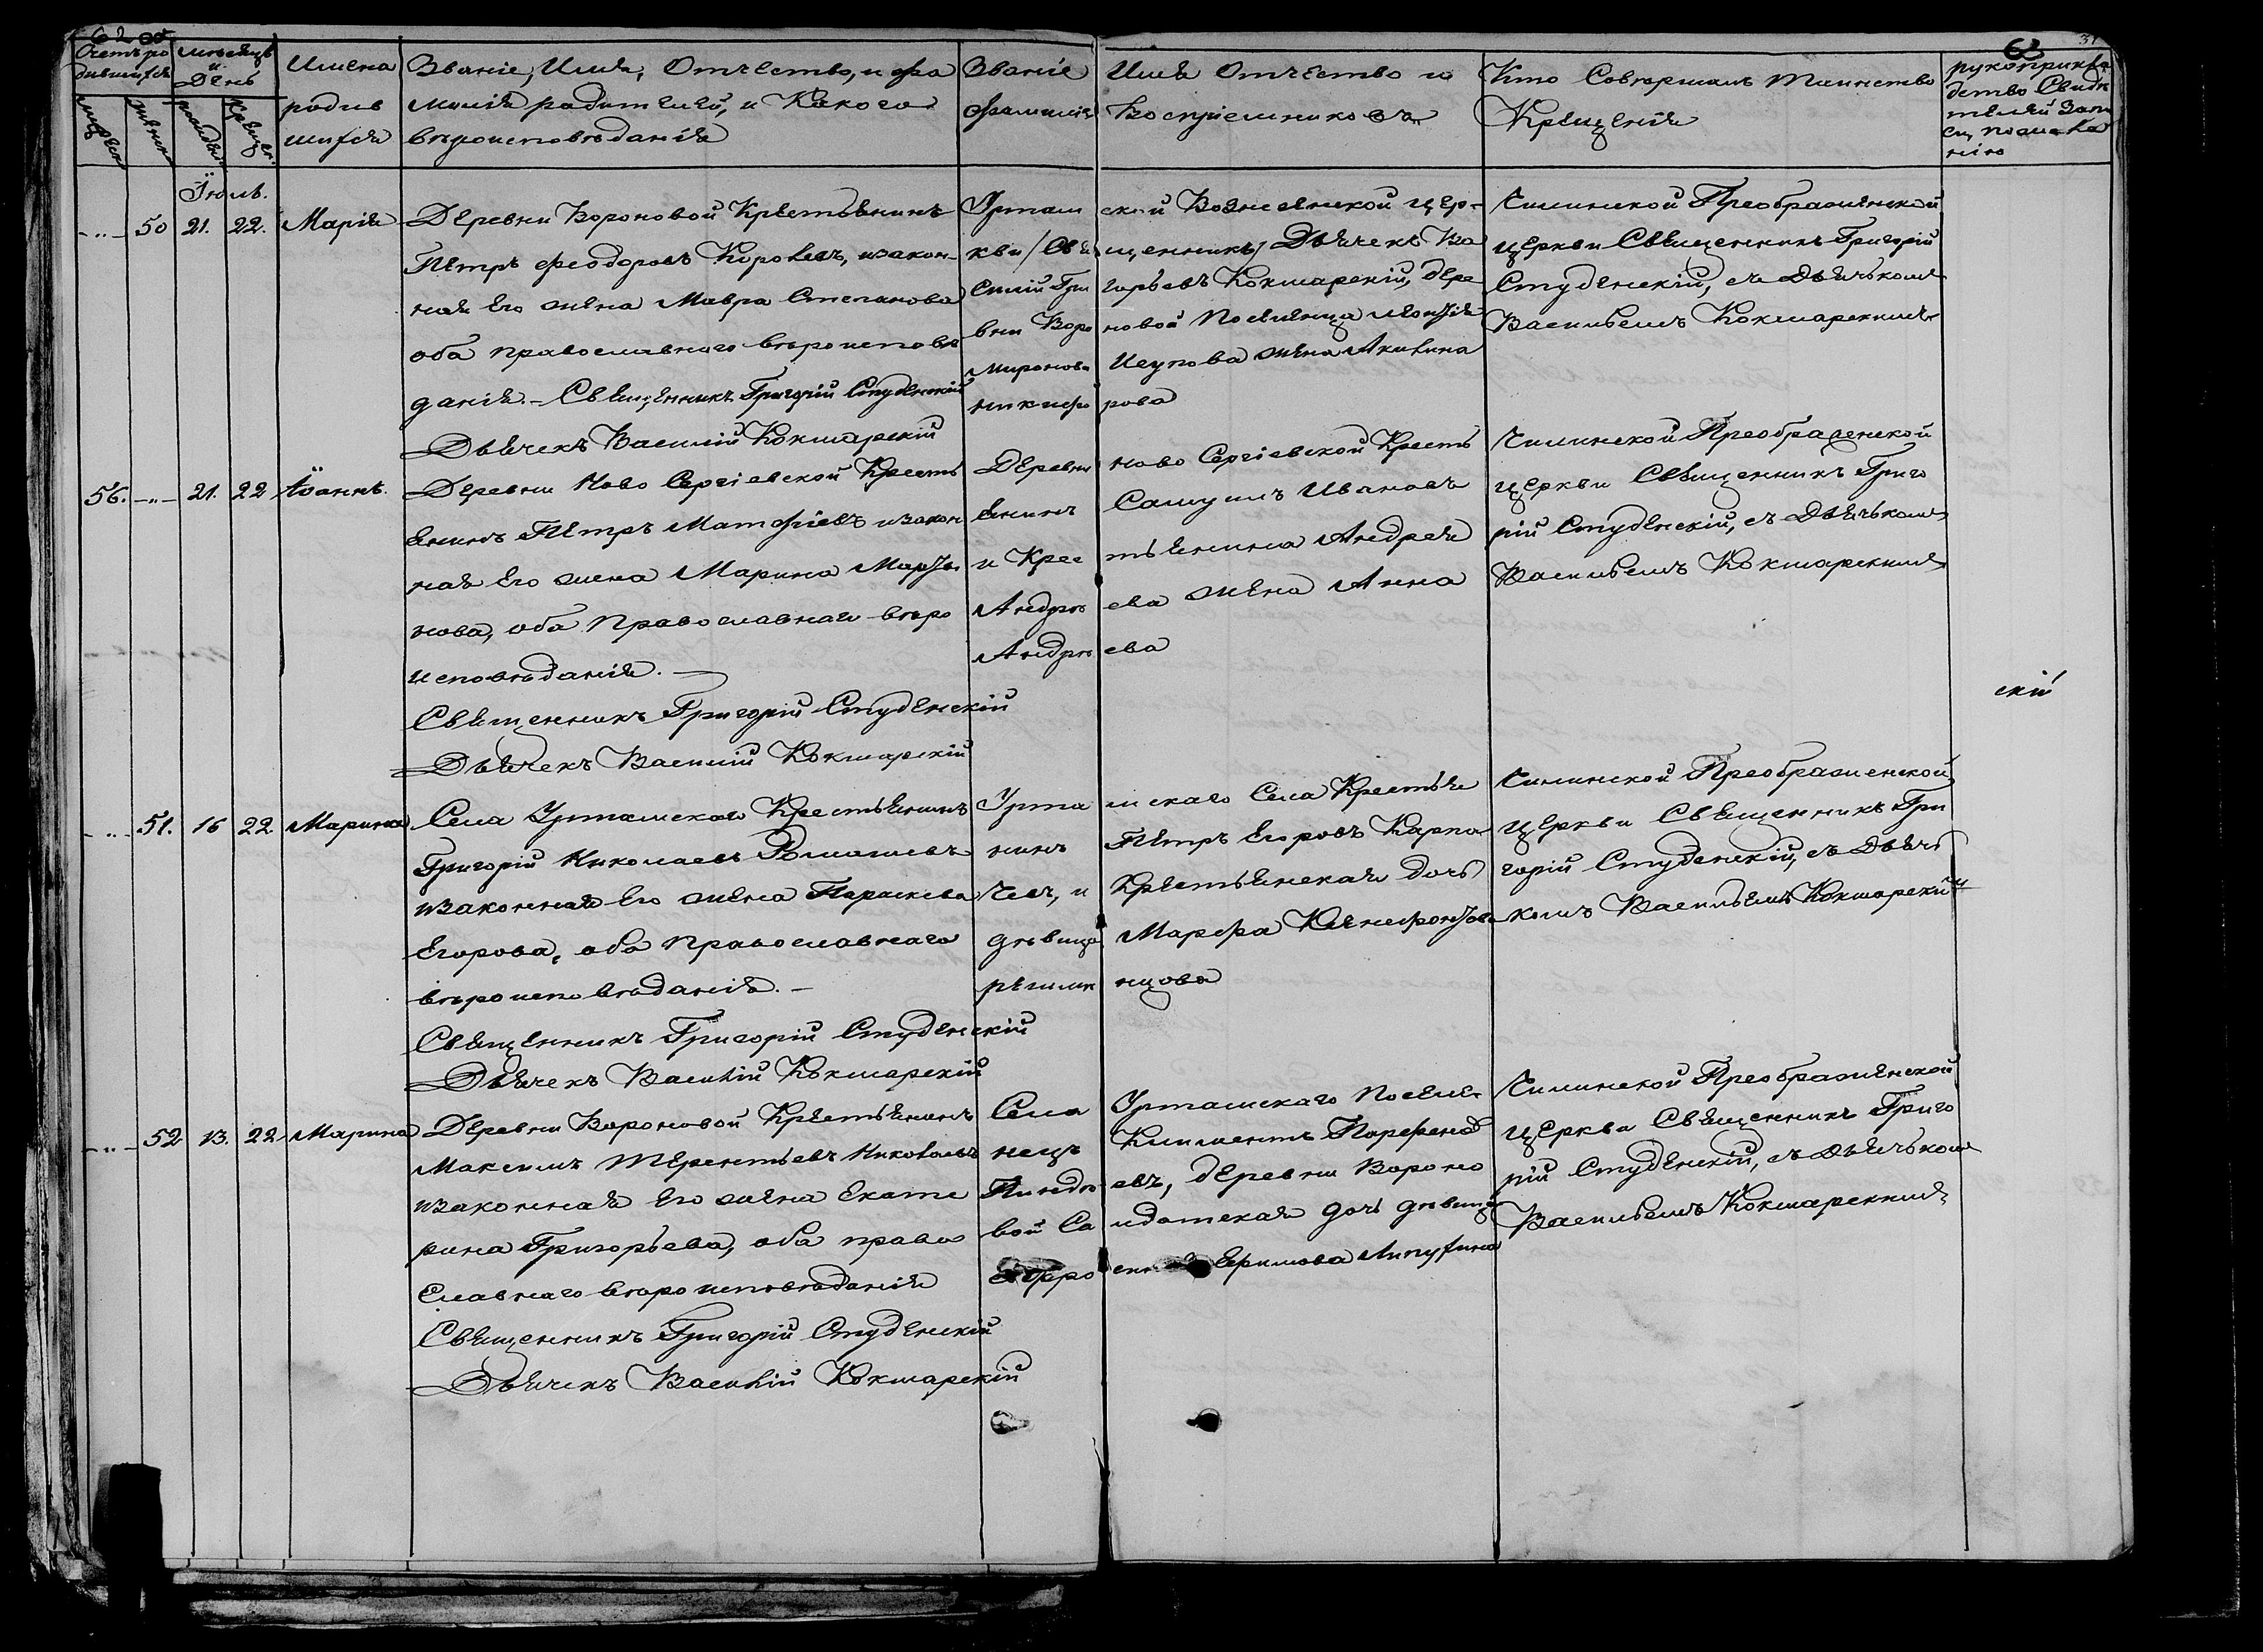 62 об
31
Счетъ ро
дившихся
мѣсяцъ
и
День
Имена
родив
шихся
Званіе, Имя, Отчество, и фа
милія родителей, и Какого
вѣроисповѣданія
Званіе
фамилія
Имя Отчество и
Воспріемниковъ
Кто Совершалъ Таинство
Крещенія
рукоприкла
детво Свидѣ
телей Запи
си, по жела
нію
Іюль.
50 21. 22. Марія
Деревни Вороновой Крестьянинъ
Петръ Феодоровъ Королевъ, изакон-
ная Его жена Мавра Степанова
оба православнаго вѣроисповѣ
данія. – Священникъ Григорій Студенскій
Дьячекъ Василій Кокшарскій
Уртам ской Вознесенской цер-
кви /Свя щенникъ/ Дьячекъ Ва
силій Гри горьевъ Кокшарскій, дере
вни Воро новой Поселенца
Миронова Иеупова жена Акилина
Никифо рова
Чилинской Преображенской
церкви Священникъ Григорій
Студенскій, съ Дьячькомъ
Васильемъ Кокшарскимъ
56. 21. 22 Іоаннъ.
Деревни Ново Сергіевской Кресть
янинъ Петръ Матфіевъ изакон
ная Его жена Марина Марты
нова, оба Православнаго вѣро
исповѣданія. –
Священникъ Григорій Студенскій
Дьячекъ Василій Кокшарскій
Деревни ново Сергіевской Кресть
янинъ Самуилъ Ивановъ
и Крес тьянина Андрея
Андрѣ ева жена Анна
Андрѣ ева
Чилинской Преображенской
церкви Священникъ Григо
рій Студенскій, съ Дьячькомъ
Васильемъ Кокшарскимъ
скій
51. 16 22. Марина
Села Уртамскаго Крестьянинъ
Григорій Николаевъ Ромашевъ
изаконная Его жена Параскева
Егорова, оба православнаго
вѣроисповѣданія. –
Священникъ Григорій Студенскій
Дьячекъ Василій Кокшарскій
Урта мскаго Села Крестья
нинъ Петръ Егоровъ Карпа
чевъ, и Крестьянская дочь
дѣвица Марфа Ксенофонтова
нцова
Чилинской Преображенской
церкви Священникъ Гри
горій Студенскій, съ Дьячь
комъ Васильемъ Кокшарскимъ
52 13. 22 Марина
Деревни Вороновой Крестьянинъ
Максимъ Терентьевъ
изаконная Его жена Екате
рина Григорьева, оба право
славнаго вѣроисповѣданія
Священникъ Григорій Студенскій
Дьячекъ Василій Кокшарскій
Села Уртамскаго Поселе
нецъ Климентъ Парфенов
евъ, деревни Вороно
вой Со лдатская дочь дѣвица
Ефимова Липухина
Чилинской Преображенской
церкви Священникъ Григо
рій Студенскій, съ Дьячькомъ
Васильемъ Кокшарскимъ